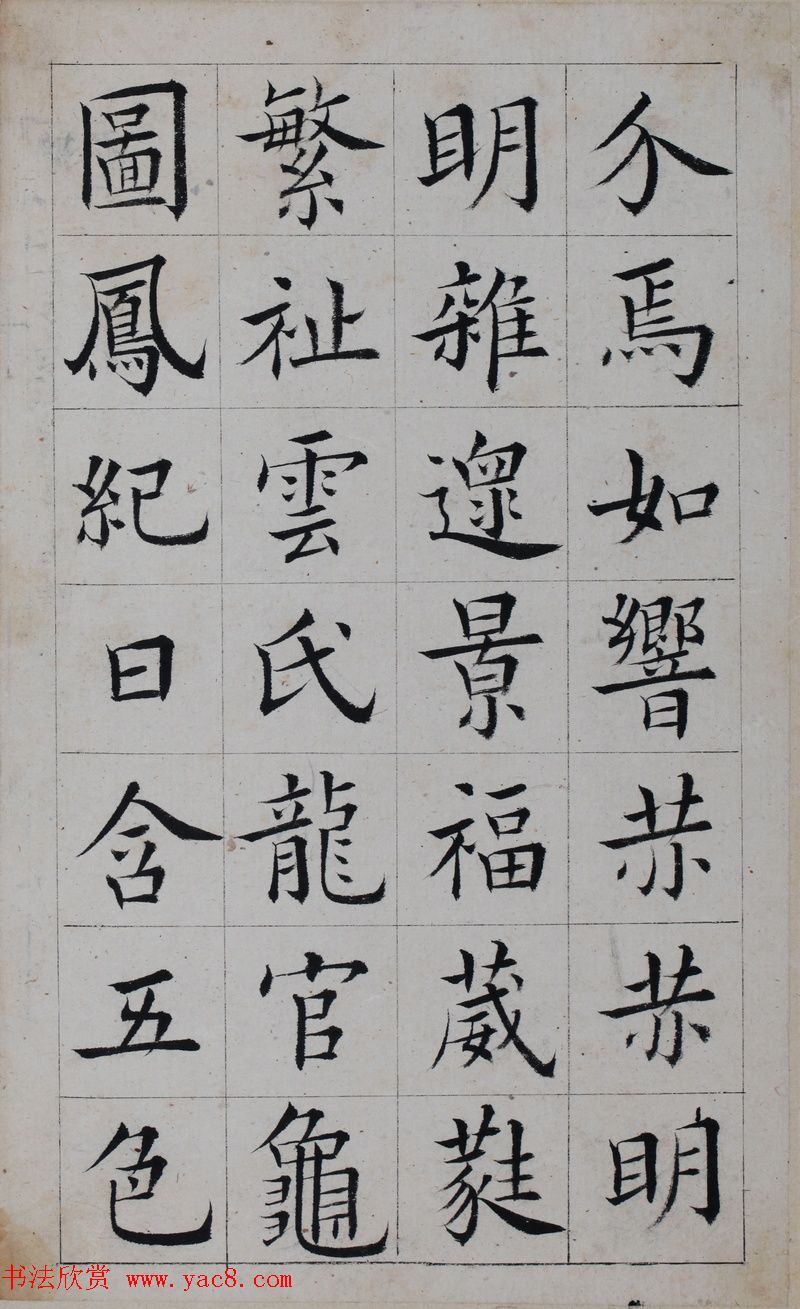 介焉如響赫赫明
明雜遝景福葳蕤
繁祉雲氏龍官龜
圖鳳紀日含五色
书法欣赏 www.yac8.com